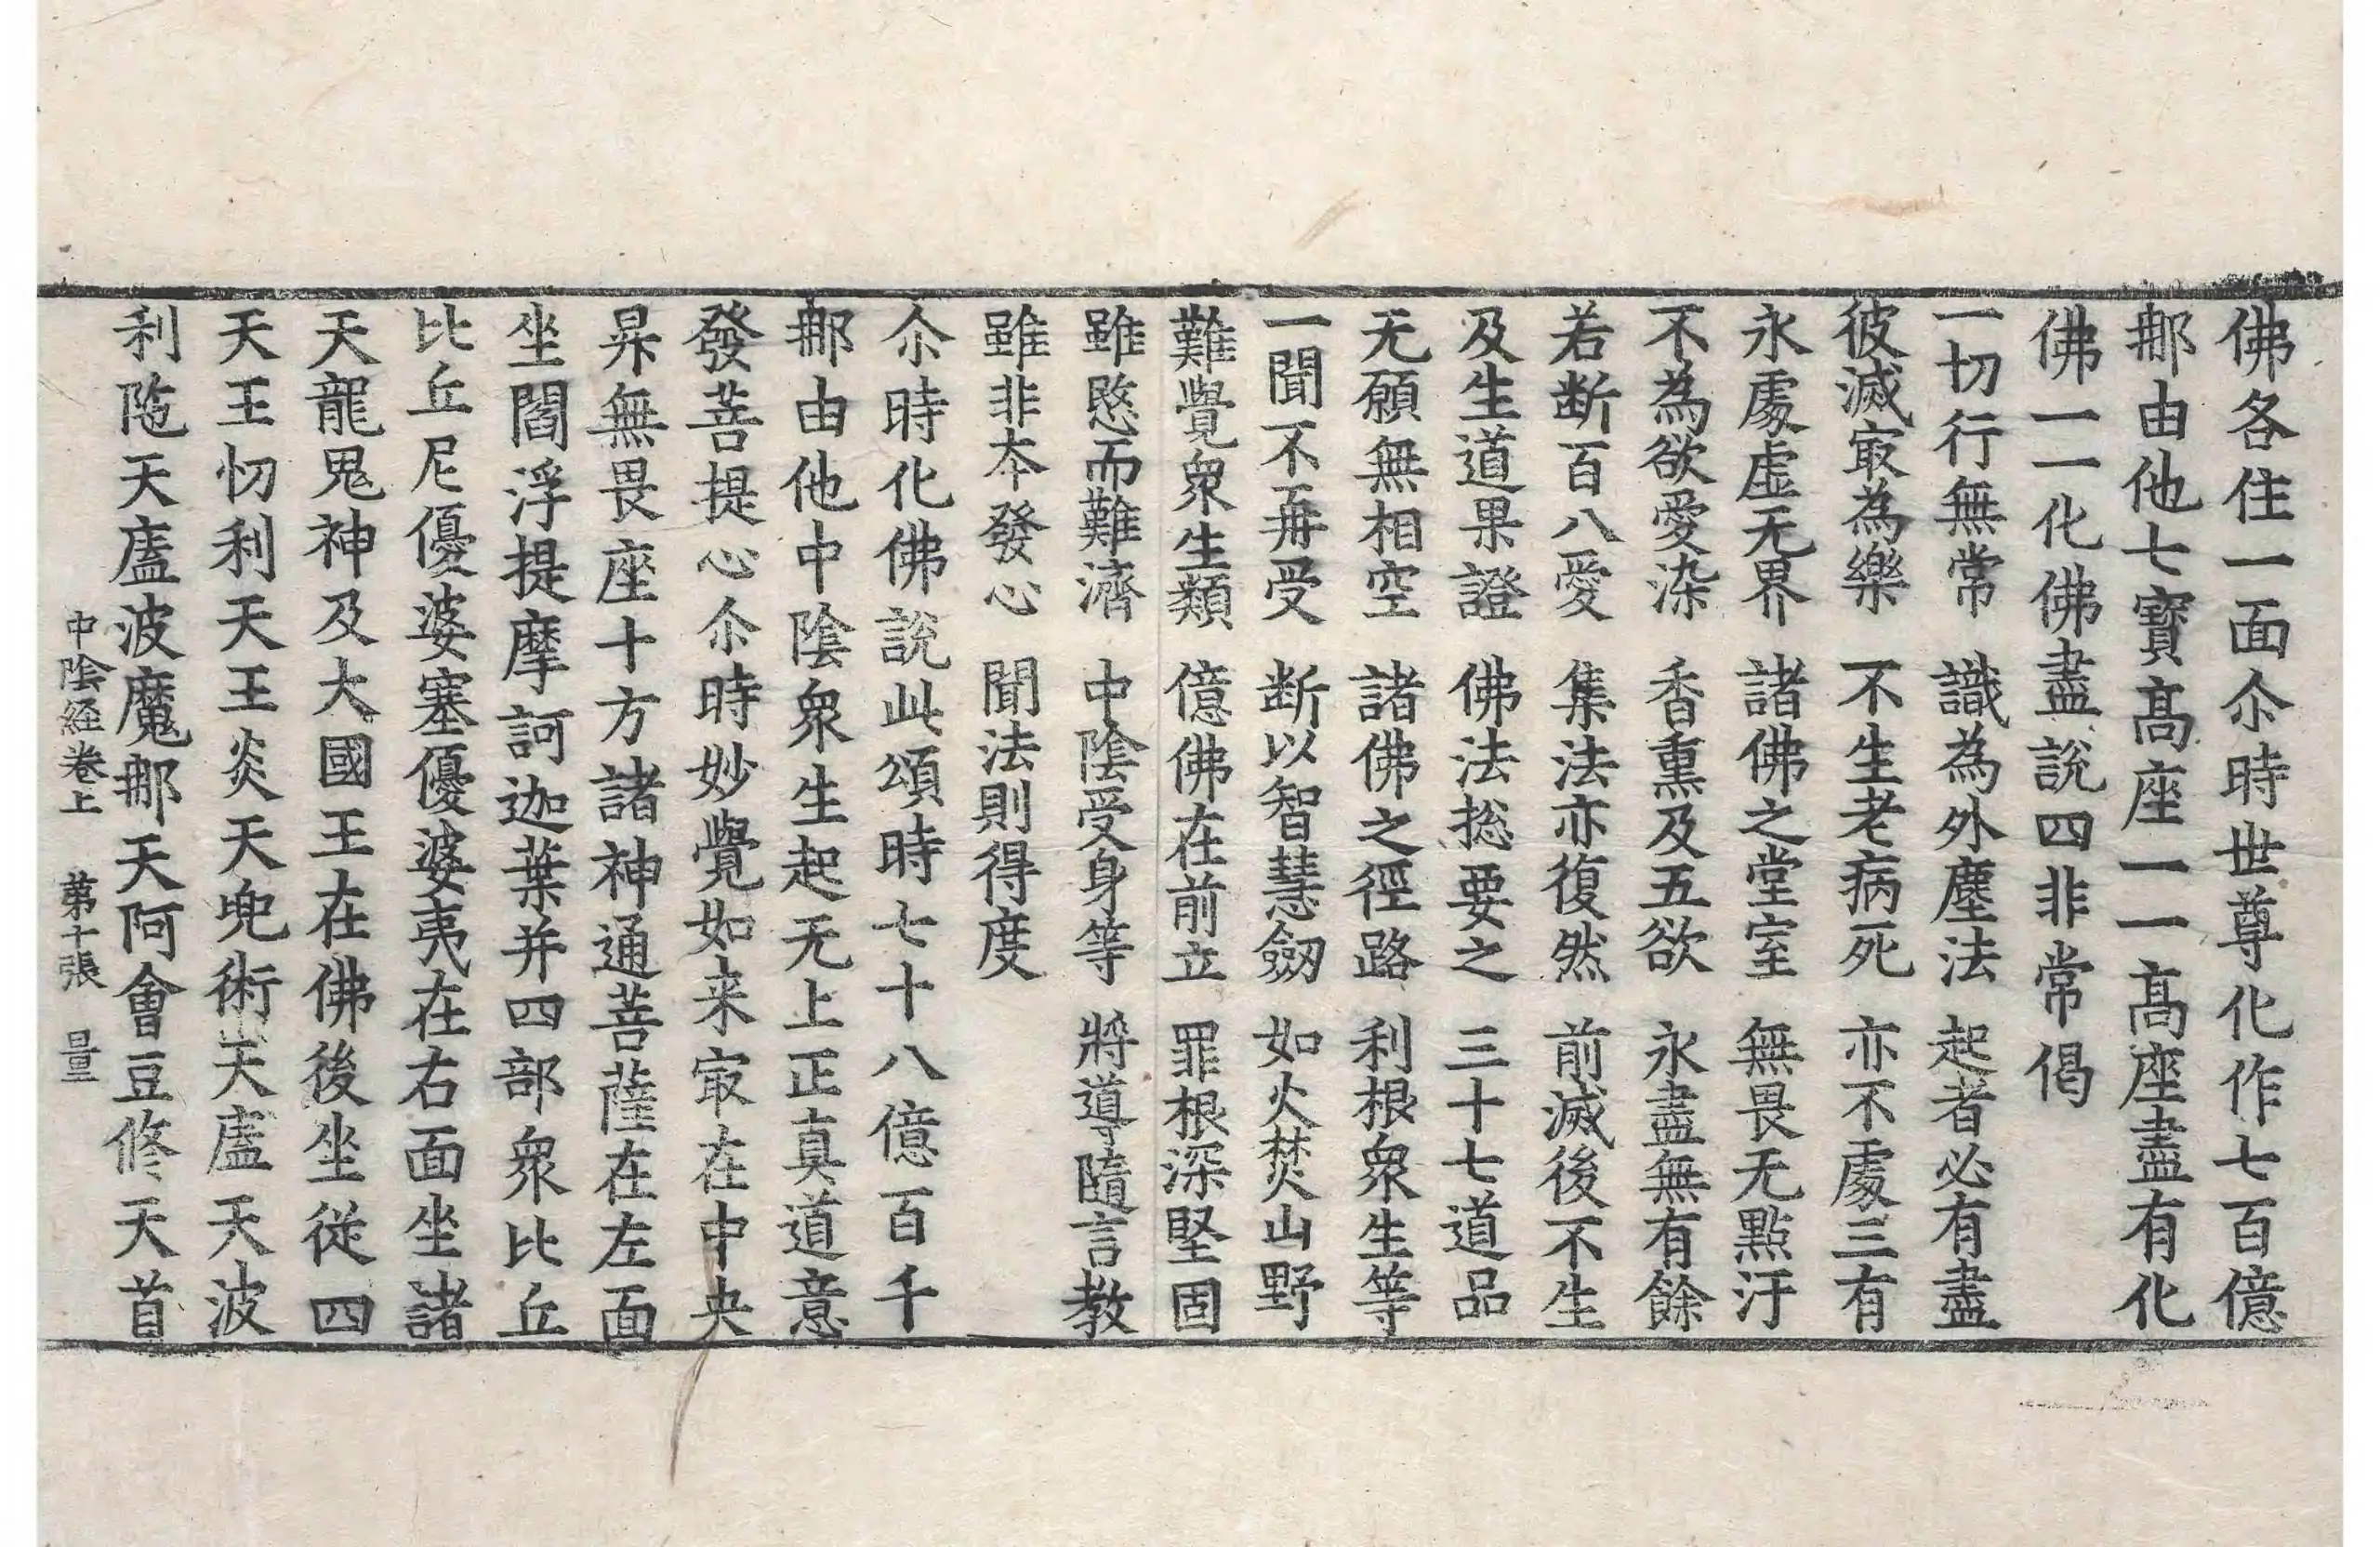 佛各住一面尒時世尊化作七百億
那由他七寶髙座一一髙座盡有化
佛一一化佛盡說四非常偈
一切行無常　識為外塵法　起者必有盡
彼滅㝡為樂　不生老病死　亦不處三有
永處虛无界　諸佛之堂室　無畏无點汙
不為欲愛染　香熏及五欲　永盡無有餘
若断百八愛　集法亦復然　前滅後不生
及生道果證　佛法捴要之　三十七道品
无願無相空　諸佛之徑路　利根衆生等
一聞不再受　断以智慧劒　如火焚山野
難覺衆生類　億佛在前立　罪根深堅固
雖愍而難濟　中陰受身等　將導隨言教
雖非夲發心　聞法則得度
尒時化佛說此頌時七十八億百千
那由他中陰衆生起无上正真道意
發菩提心尒時妙覺如来㝡在中央
昇無畏座十方諸神通菩薩在左面
坐閻浮提摩訶迦葉并四部衆比丘
比丘尼優婆塞優婆夷在右面坐諸
天龍鬼神及大國王在佛後坐従四
天王忉利天王炎天兜術天盧天波
利陁天廅波魔那天阿會豆修天首
中陰経卷上　苐十張　量